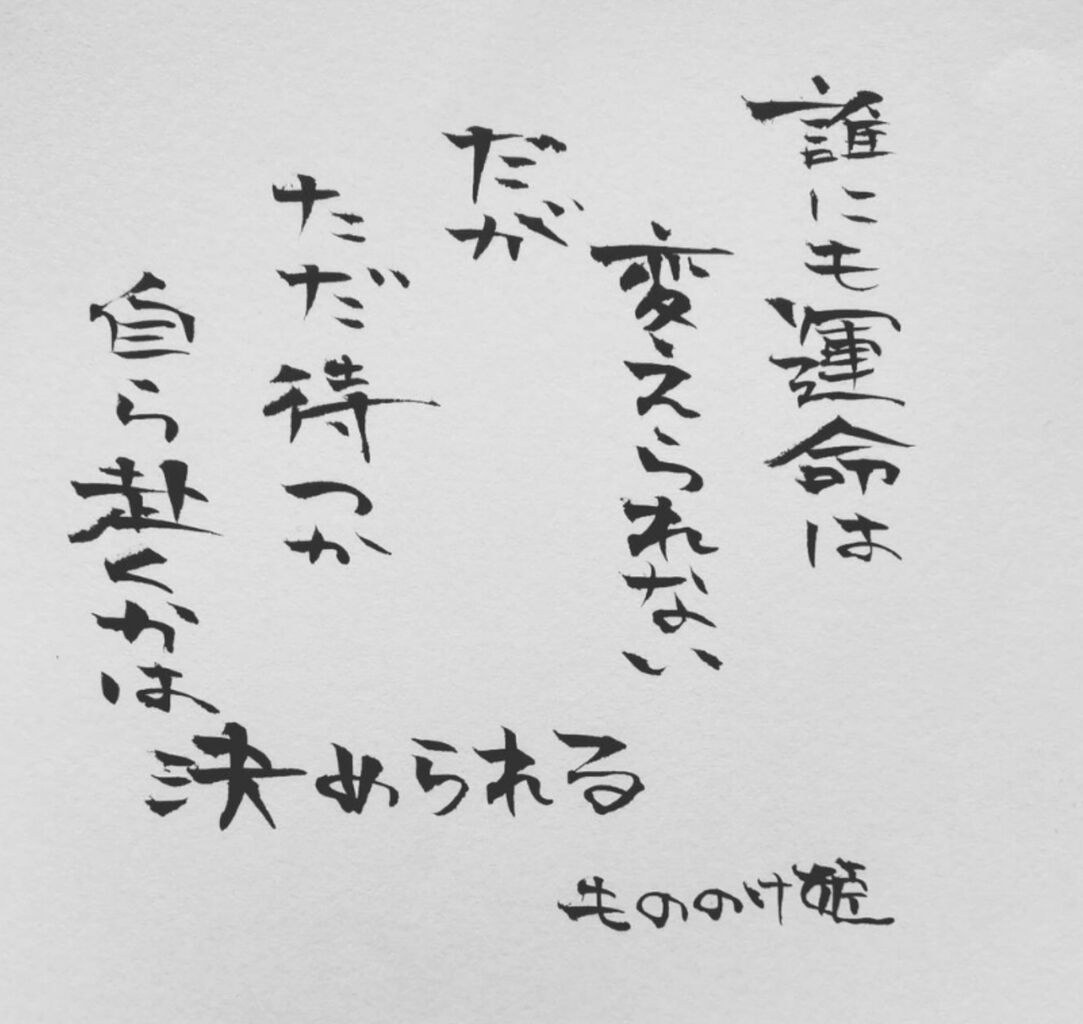 誰にも運命は
変えられない
だが
ただ待つか
自ら赴くかは
決められる
もののけ姫